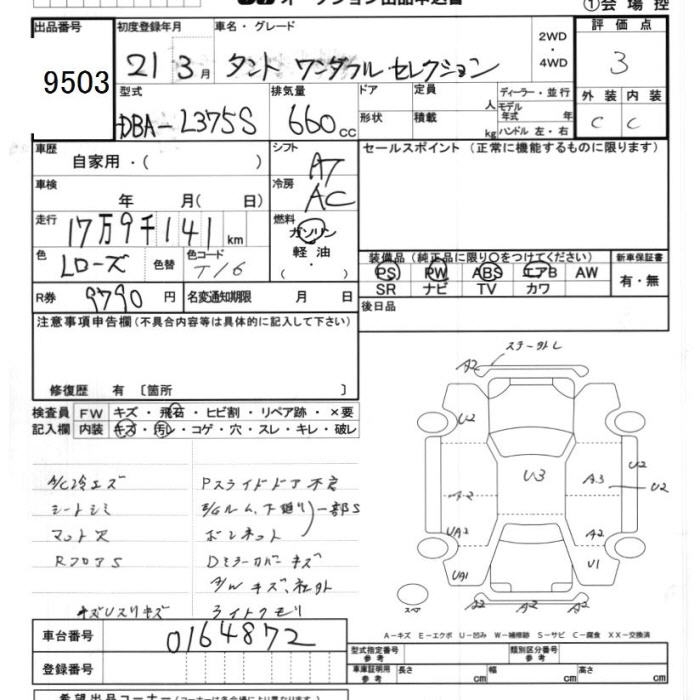 オークション出品申込書
①会場控
出品番号
9503
初度登録年月
21 3月
車名・グレード
タント ワンダフルセレクション
2WD
・
4WD
評価点
3
型式
DBA-L375S
排気量
660cc
ドア
定員
人
ディーラー・並行
モデル年式 年
形状
積載
kg
ハンドル 左・右
外装 内装
C C
車歴
自家用・( )
シフト
AT
セールスポイント (正常に機能するものに限ります)
車検
年 月( 日)
冷房
AC
走行
17万9千141km
燃料
ガソリン
軽油
( ・ )
色
Lローズ
色替
色コード
T16
装備品 (純正品に限り○をつけてください)
PS PW ABS エアB AW
SR ナビ TV カワ
新車保証書
有・無
R券
9790円
名変通知期限 月 日
後日品
注意事項申告欄 (不具合内容等は具体的に記入して下さい)
修復歴 有 〔箇所 〕
検査員
記入欄
FW キズ・飛石・ヒビ割・リペア跡・×要
内装 キズ・汚レ・コゲ・穴・スレ・キレ・破レ
A/C冷エズ
シートシミ
マット欠
RフロアS
キズUスリキズ
Pスライドドア不良
E/Gルーム,下廻り 一部S
ボンネット
Dミラーカバーキズ
A/Wキズ、社外
ライトクモリ
A2
U2
U3
A3
U2
U2
A2
UA2
A2
UA1
U1
スペア
A2 A2 A2
A-キズ E-エクボ U-凹み W-補修跡 S-サビ C-腐食 XX-交換済
車台番号
0164872
型式指定番号
参考
類別区分番号
参考
登録番号
車庫証明用
参考
長さ cm
幅 cm
高さ cm
希望出品コーナー (コーナーは各会場により異なります)